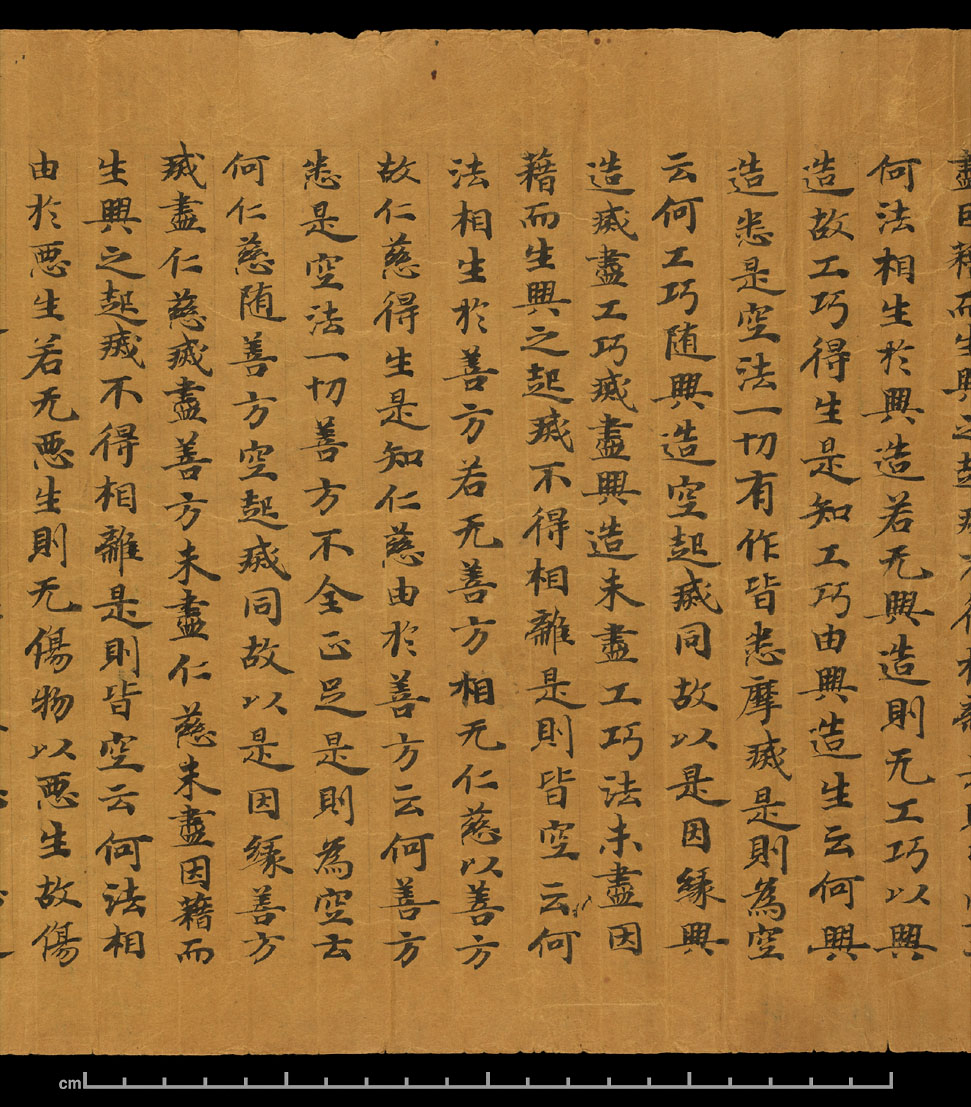 而生興之起
何法相生於興造若无興造則无工巧以興
造故工巧得生是知工巧由興造生云何興
造悉是空法一切有作皆悉摩滅是則為空
云何工巧随興造空起滅同故以是因緣興
造滅盡工巧滅盡興造未盡工巧法未盡因
藉而生興之起滅不得相離是則皆空云何
法相生於善方若无善方相无仁慈以善方
故仁慈得生是知仁慈由於善方云何善方
悉是空法一切善方不全正足是則為空云
何仁慈随善方空起滅同故以是因緣善方
滅盡仁慈滅盡善方未盡仁慈未盡因藉而
生興之起滅不得相離是則皆空云何法相
由於惡生若无惡生則无傷物以惡生故傷